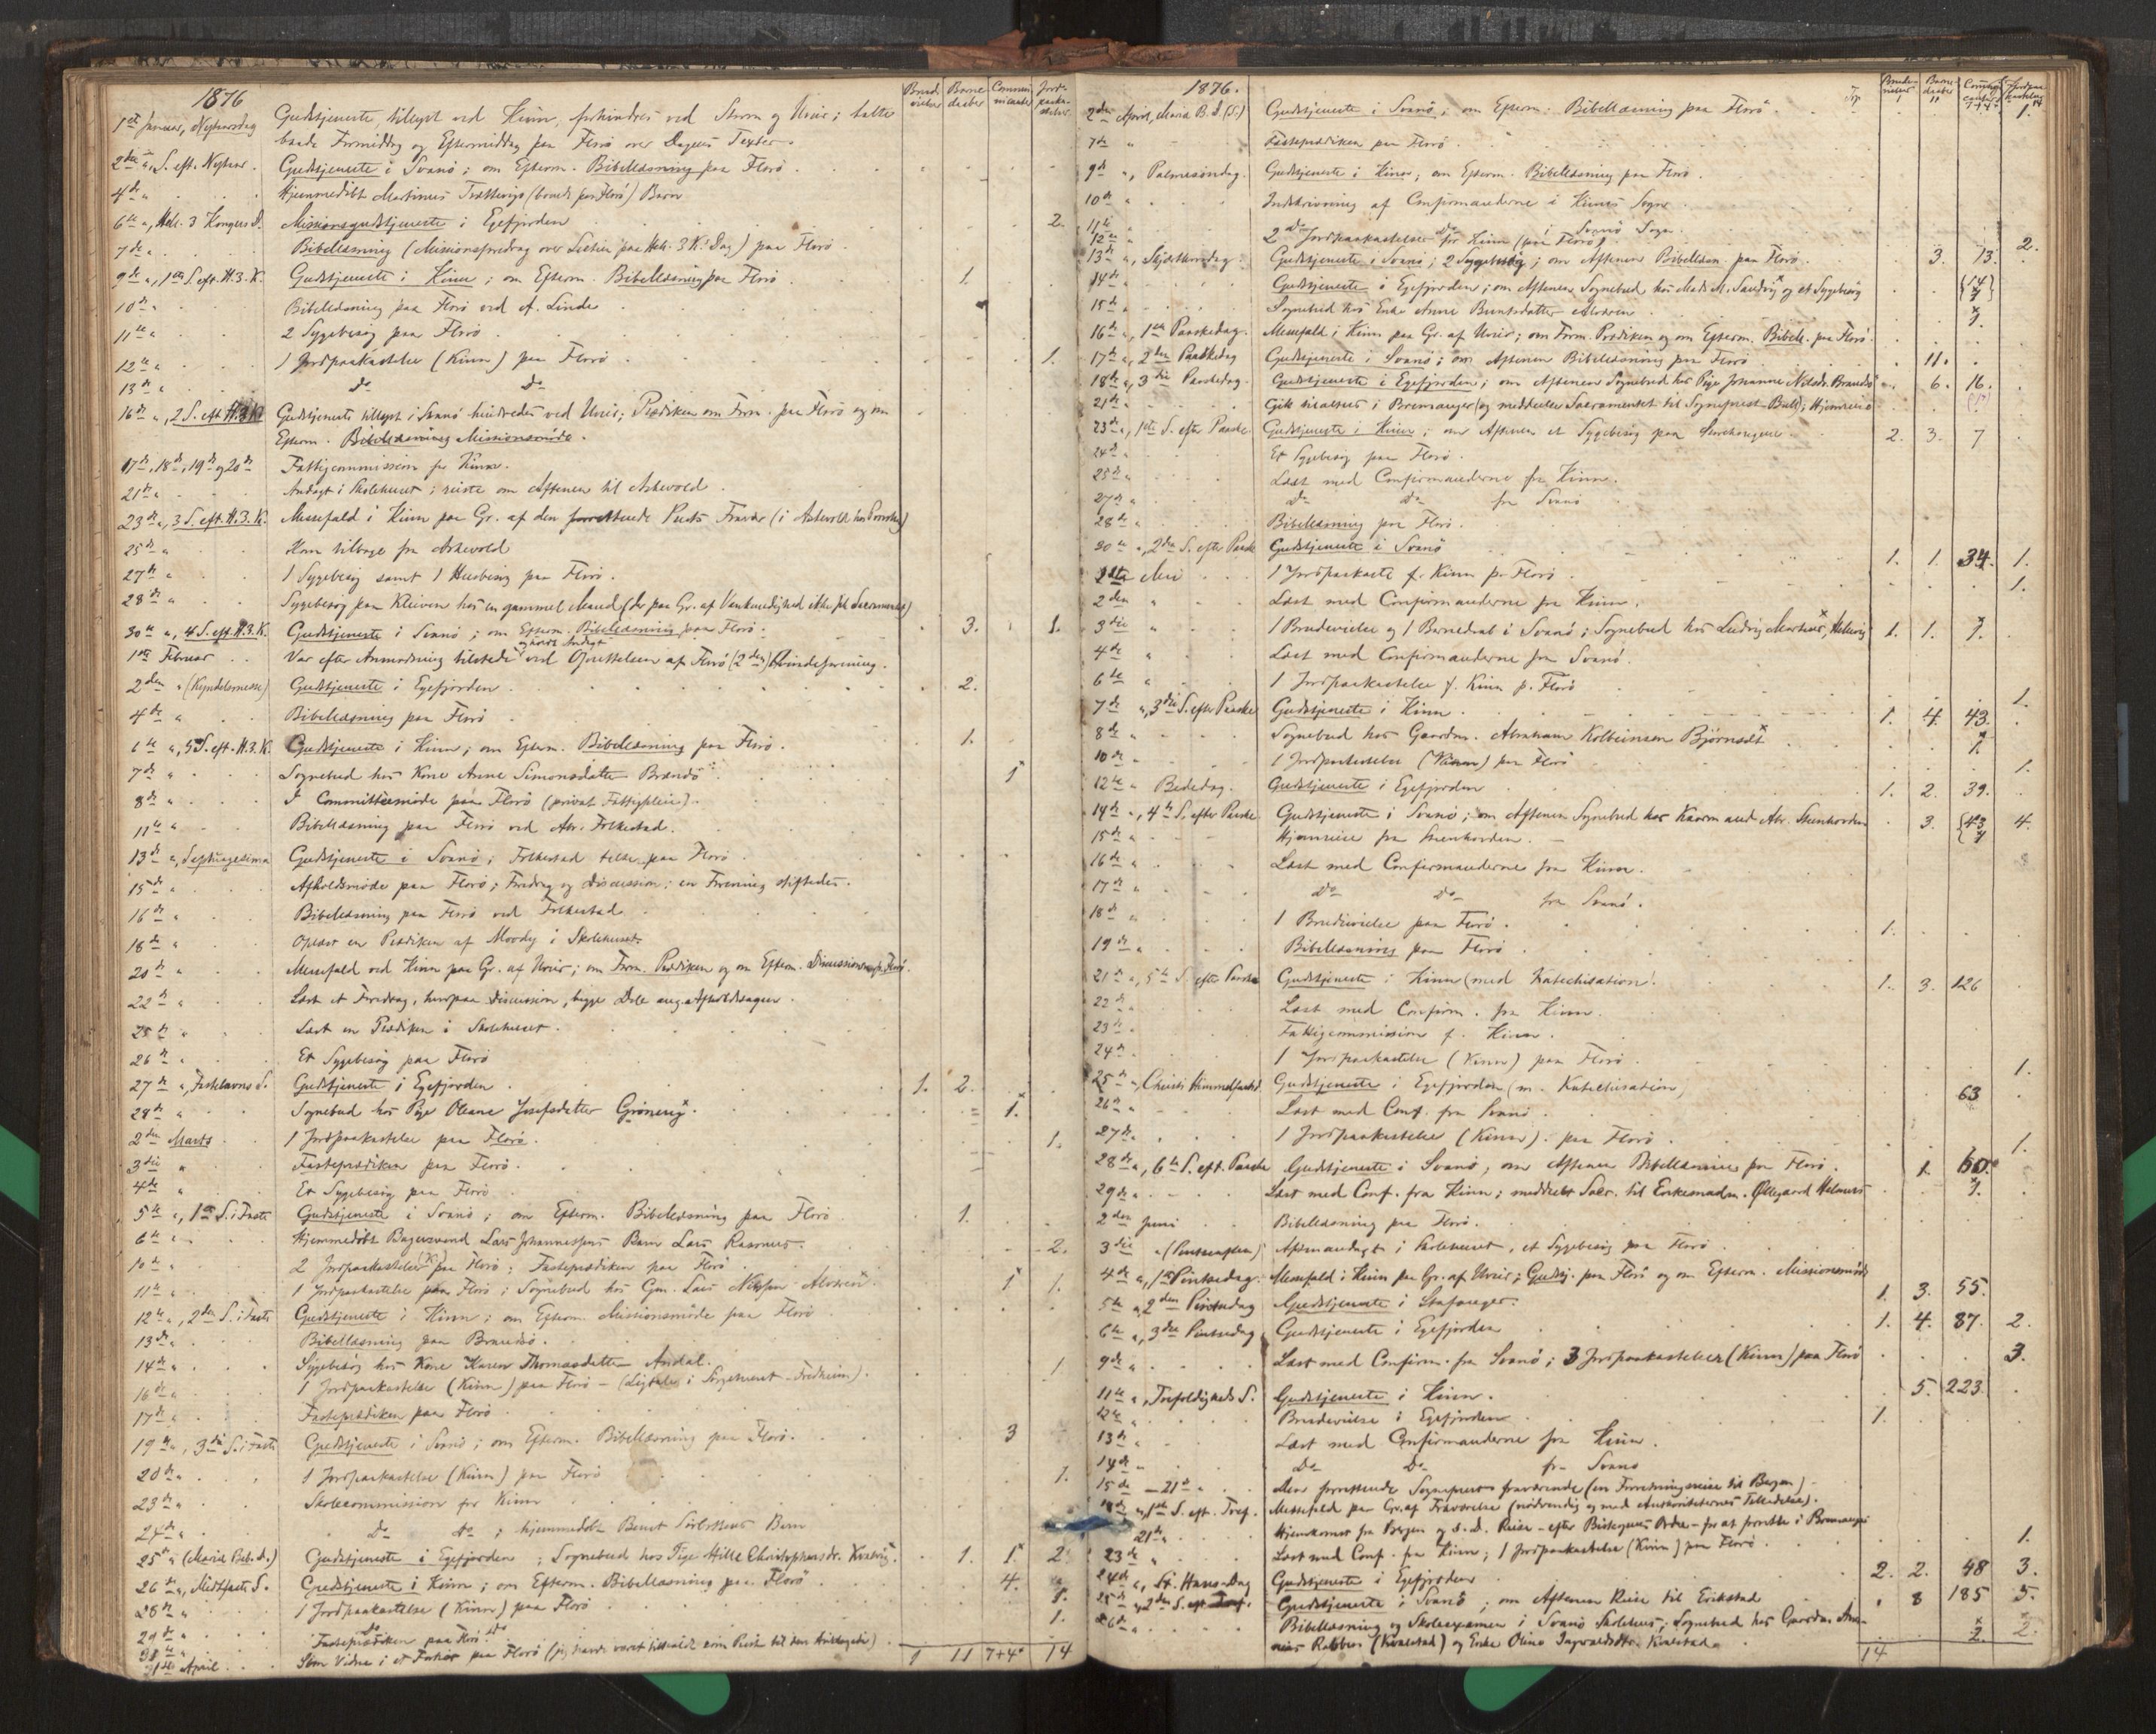 1876
Brude
vielser
Barne
daaber
Commu
nicanter
Jord-
paaka-
stelser
1ste Januar, Nytaarsdag Gudstjeneste, tillyst ved Kinn, forhindret ved Storm og Uveir; talte
baade Formiddag og Eftermiddag paa Florö over Dagens Texter.
2den ", S. eft. Nytaar. Gudstjeneste i Svanö; om Efterm. Bibellæsning paa Florö.
4de " Hjemmedöbt Martinus (boende paa Florö) Barn
6te ", Hel. 3 Kongers D. Missionsgudstjeneste i Egefjorden 2.
7de " Bibellæsning (Missionsforedrag over Hel. 3 K. Dag) paa Florö.
9de ", 1ste S. eft. H. 3. K. Gudstjeneste i Kinn; om Efterm. Bibellæsning paa Florö 1.
10de " Bibellæsning paa Florö ved A. Linde
11te " 2 Sygebesög paa Florö
12te " 1 Jordpaakastelse (Kinn) paa Florö 1.
13de " do do
16de ", 2 S. eft. H. 3 K. Gudstjeneste tillyst i Svanö hindredes ved Uveir; Prædiken om Form. paa Florö og om
Efterm. Missionsmöde.
17de, 18de, 19de og 20de Fattigcommission for Kinn.
21de " Andagt i Skolehuset; reiste om Aftenen til Askevold.
23de ", 3 S. eft. H. 3. K. Messefald i Kinn paa Gr. af den forrettende Præsts Fravær (i Askevold hos Provsten)
25de " Kom tilbage fra Askevold
27de " 1 Sygebesög samt 1 Husbesög paa Florö.
28de " Sygebesög paa Kleiven hos en gammel Mand (der paa Gr. af Vankundighed ikke fik Sacramentet)
30te ", 4 S. eft. H. 3. K. Gudstjeneste i Svanö; om Efterm. Bibellæsning paa Florö. 3. 1.
1ste Februar Var efter Anmodning tilstede ved Oprettelsen af Florö (2den) Kvindeforening.
2den " (Kyndelsmesse) Gudstjeneste i Egefjorden 2.
4de " Bibellæsning paa Florö
6te ", 5 S. eft. H. 3. K. Gudstjeneste i Kinn; om Efterm. Bibellæsning paa Florö. 1.
7de " Sognebud hos Kone Anne Simonsdatter Brandsö 1x
8de " I Committeemöde paa Florö (privat Fattigpleie).
11te " Bibellæsning paa Florö ved Folkestad.
13de ", Septuagesima Gudstjeneste i Svanö; Folkestad talte paa Florö
15de " Afholdsmöde paa Florö; Foredrag og Discussion; en Forening stiftedes.
16de " Bibellæsning paa Florö ved Folkestad
18de " Oplæst en Prædiken af Moody i Skolehuset
20de " Messefald ved Kinn paa Gr. af Uveir; om Form. Prædiken og om Efterm. Discussionsm. p. Florö.
22de " Læst et Foredrag, hvorpaa Discussion, begge Dele ang. Afholdssagen.
25de " Læst en Prædiken i Skolehuset.
26de " Et Sygebesög paa Florö
27de ", Fastelavns S. Gudstjeneste i Egefjorden 1. 2.
28de " Sognebud hos Pige Oleane Josefsdatter Grönenge x. 1.x
2den Marts 1 Jordpaakastelse paa Florö. 1.
3die " Fasteprædiken paa Florö.
4de " Et Sygebesög paa Florö
5te ", 1ste S. i Faste Gudstjeneste i Svanö; om Efterm. Bibellæsning paa Florö 1.
6te " Hjemmedöbt Lars Johannessens Barn Lars Rasmus.
10de " 2 Jordpaakastelser (K) paa Florö; Fasteprædiken paa Florö 2.
11te " 1 Jordpaakastelse paa Florö; Sognebud hos Gm. Lars Nilssen x. 1x 1.
12te ", 2den S. i Faste Gudstjeneste i Kinn; om Efterm. Missionsmöde paa Florö
13de " Bibellæsning paa Brandsö.
14de " Sygebesög hos Kone Karen Thomasdatter Andal.
16de " 1 Jordpaakastelse (Kinn) paa Florö - (Ligtale i Sörgehuset - Fredheim). 1
17de " Fasteprædiken paa Florö
19de ", 3die S. i Faste Gudstjeneste i Svanö; om Efterm. Bibellæsning paa Florö. 3
20de " 1 Jordpaakastelse (Kinn) paa Florö 1.
23de " Skolecommission for Kinn
24de " do do; hjemmedöbt Bernt Barn
25de " (Mariæ Beb. D.) Gudstjeneste i Egefjorden; Sognebud hos Pige Christophersdr. x. 1. 1x 2.
26de ", Midtfaste S. Gudstjeneste i Kinn; om Efterm. Bibellæsning paa Florö 4.
28de " 1 Jordpaakastelse (Kinn) paa Florö 1.
29de " do do 1.
31te " Fasteprædiken paa Florö
1ste April Som Vidne i et Forhör paa Florö
1 11 7+4x 14
1876.
Trsp.
Brude-
vielser
1
Barne-
daaber
11
Commu-
nicanter
7+4x
Jordpaa-
kastelser
14
2den April, Mariæ B. D. (S.) Gudstjeneste i Svanö; om Efterm. Bibellæsning paa Florö 1.
7de " Fasteprædiken paa Florö
9de ", Palmesöndag. Gudstjeneste i Kinn; om Efterm. Bibellæsning paa Florö.
10de " Indskrivning af Confirmanderne i Kinns Sogn.
11te " do do i Svanö Sogn.
12te " 2 Jordpaakastelser for Kinn (paa Florö). 2.
13de ", Skjærtorsdag Gudstjeneste i Svanö; 2 Sygebesög; om Aftenen Bibellæsn. paa Florö. 3. 13.
14de " Gudstjeneste i Egefjorden; om Aftenen Sognebud hos Mads M. Sandvig x og et Sygebesög 14
15de " Sognebud hos Enke Anne Berntsdatter 1.x
16de ", 1ste Paaskedag. Messefald i Kinn paa Gr. af Uveir; om Form. Prædiken og om Efterm. Bibell. paa Florö.
17de ", 2den Paaskedag Gudstjeneste i Svanö; om Aftenen Bibellæsning paa Florö 11.
18de ", 3die Paaskedag. Gudstjeneste i Egefjorden; om Aftenen Sognebud hos Pige Johanne Nilsdr. Brandsö 6. 16.
21de " Gik til alters i Bremanger (og meddeelte Sacramentet til Sognepræst Bull); Hjemreise
23de ", 1ste S. efter Paaske. Gudstjeneste i Kinn; om Aftenen et Sygebesög paa 2. 3. 7
24de " Et Sygebesög paa Florö.
25de " Læst med Confirmanderne fra Kinn.
27de " do do fra Svanö
28de " Bibellæsning paa Florö.
30te ", 2den S. efter Paaske Gudstjeneste i Svanö 1. 1. 34. 1.
1ste Mai 1 Jordpaakast. f. Kinn p. Florö 1.
2den " Læst med Confirmanderne fra Kinn.
3die " 1 Brudevielse og 1 Barnedaab i Svanö; Sognebud hos Ludvig Martinus x, 1. 1. 1.x
4de " Læst med Confirmanderne fra Svanö.
6te " 1 Jordpaakastelse f. Kinn p. Florö 1.
7de ", 3die S. efter Paaske Gudstjeneste i Kinn 1. 4. 43.
8de " Sognebud hos Gaardm. Abraham Kolbeinsen Björnset x 1.x
10de " 1 Jordpaakastelse (Kinn) paa Florö 1.
12te " Bededag. Gudstjeneste i Egefjorden 1. 2. 39.
14de ", 4de S. efter Paaske. Gudstjeneste i Svanö; om Aftenen Sognebud hos Kaarmand Abr. Steinhovden 3. 43 4.
15de " Hjemreise fra Steenhovden.
16de " Læst med Confirmanderne fra Kinn.
17de " do do fra Svanö.
18de " 1 Brudevielse paa Florö. 1.
19de " Bibellæsning paa Florö
21de ", 5te S. efter Paaske Gudstjeneste i Kinn (med Katechisation). 1. 3. 126
22de " Læst med Confirm. fra Kinn.
23de " Fattigcommission f. Kinn.
24de " 1 Jordpaakastelse (Kinn) paa Florö. 1.
25de ", Christi Himmelfartsd. Gudstjeneste i Egefjorden (m. Katechisation) 63
26de " Læst med Conf. fra Svanö.
27de " 1 Jordpaakastelse (Kinn) paa Florö. 1.
28de ", 6te S. eft. Paaske Gudstjeneste i Svanö, om Aftenen Bibellæsning paa Florö. 1. 60.
29de " Læst med Conf. fra Kinn; meddeelt Sacr. til Enkemadm. Øllegaard Helmers 1.x
2den Juni Bibellæsning paa Florö.
3die " (Pintseaften) Aftenandagt i Skolehuset, et Sygebesög paa Florö
4de ", 1ste Pintsedag. Messefald i Kinn paa Gr. af Uveir; Gudstj. paa Florö og om Efterm. Missionsmöde
5te ", 2den Pintsedag Gudstjeneste i Stafanger. 1. 3. 55.
6te ", 3die Pintsedag Gudstjeneste i Egefjorden 1. 4. 87. 2.
9de " Læst med Confirm. fra Svanö; 3 Jordpaakastelser (Kinn) paa Florö 3.
11te ", Trefoldigheds S. Gudstjeneste i Kinn. 5. 223.
12te " Brudevielse i Egefjorden 1.
13de " Læst med Confirmanderne fra Kinn.
14de " do do fra Svanö
15de - 21de " Den forrettende Sognepræst fraværende (en Forretningsreise til Bergen)
18de ", 1ste S. eft. Tref. Messefald paa Gr. af Fraværelse (nödvendig og med Autoriteternes Tilladelse).
21de " Hjemkomst fra Bergen og s. D. Reise - efter Biskopens Ordre - for at forrette i Bremanger
23de " Læst med Conf. fra Kinn; 1 Jordpaakastelse (Kinn) paa Florö. 1.
24de ", St. Hans-Dag Gudstjeneste i Egefjorden 2. 2. 48 3.
25de ", 2den S. eft. Tref. Gudstjeneste i Svanö; om Aftenen Reise til Erikstad 8 185 5.
26de " Bibellæsning og Skoleexamen i Svanö Skolehus; Sognebud hos Gaardm. Ana-
nias (Kvalstad) og Enke Oline Ingvaldsdtr. Kvalstad. 2.x 2.
14